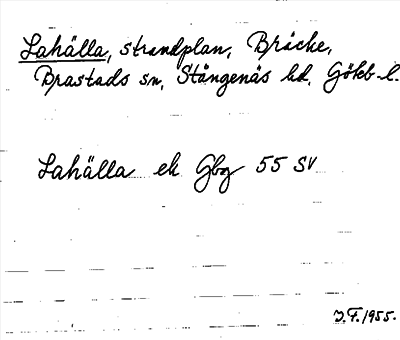 Lahälla, strandplan, Bräcke,
Brastads sn, Stångenäs hd, Göteb. l.
Lahälla ek Gbg 55 SV
J.F. 1955.